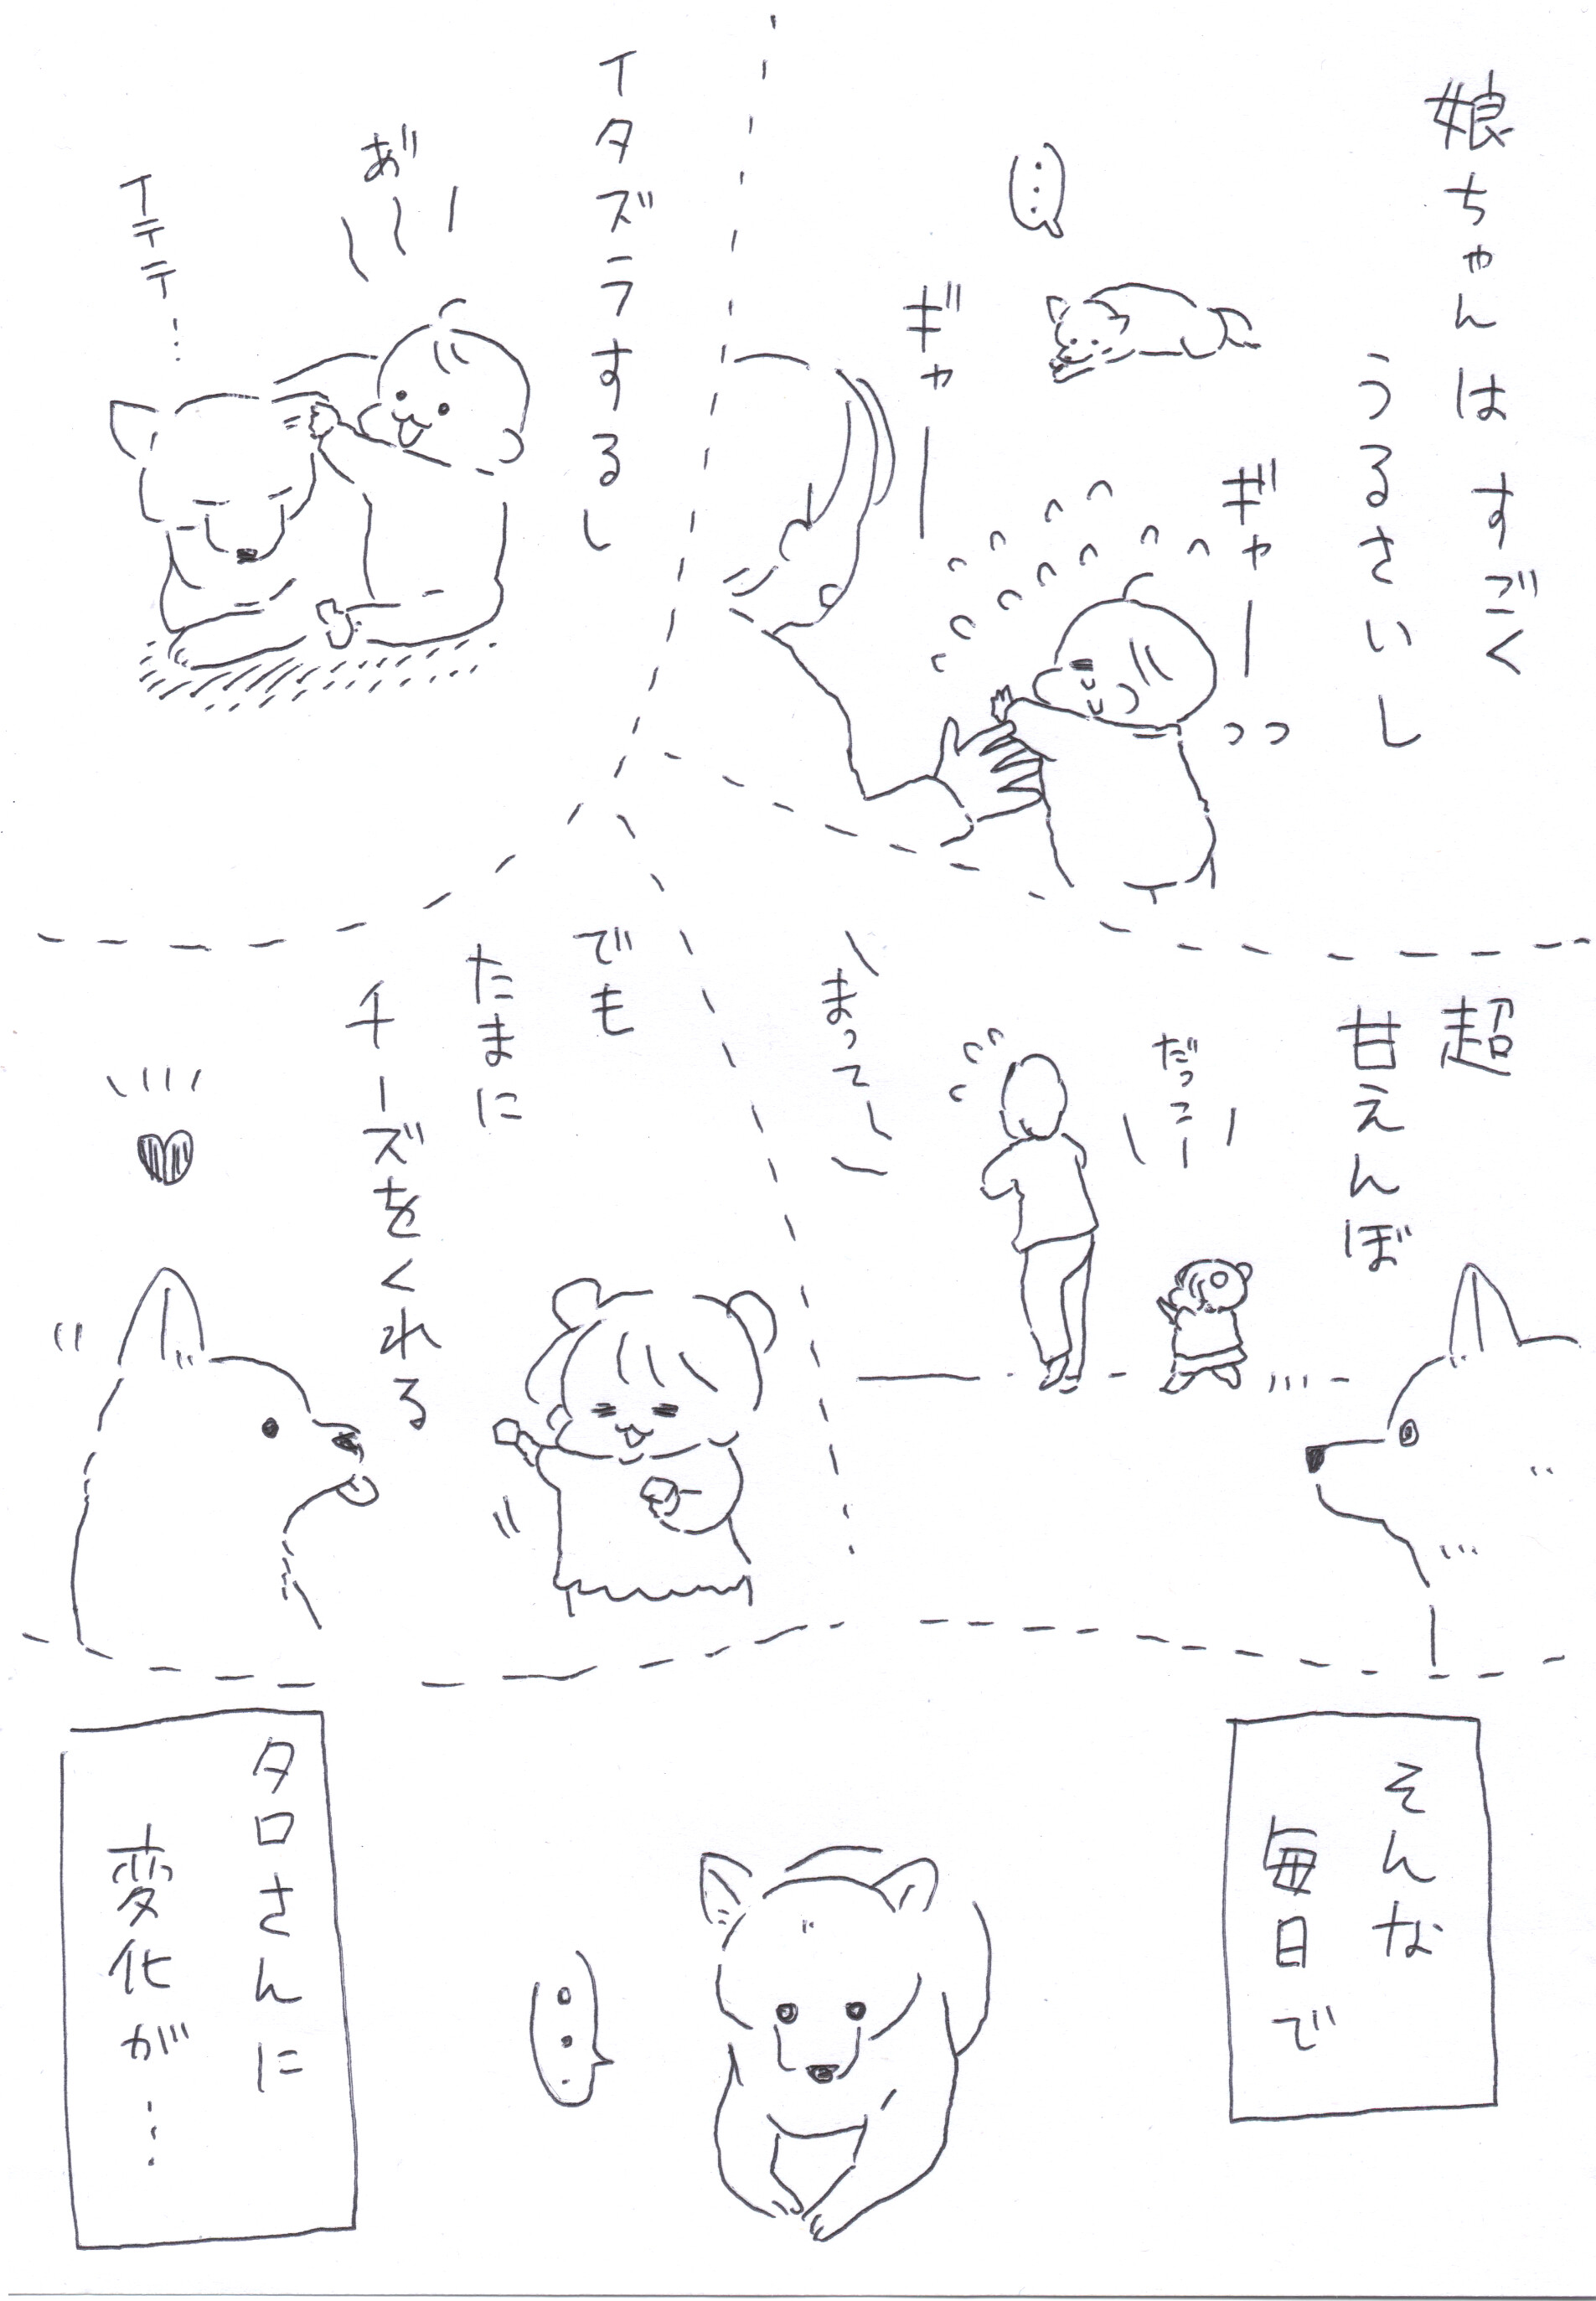 娘ちゃんはすごく
うるさいし
…
ギャー
ギャーっっ
イタズラするし
あ゛ー
イテテ…
超
甘えんぼ
だっこー
まってー
でも
たまに
チーズをくれる
そんな
毎日で
…
タロさんに
変化が…